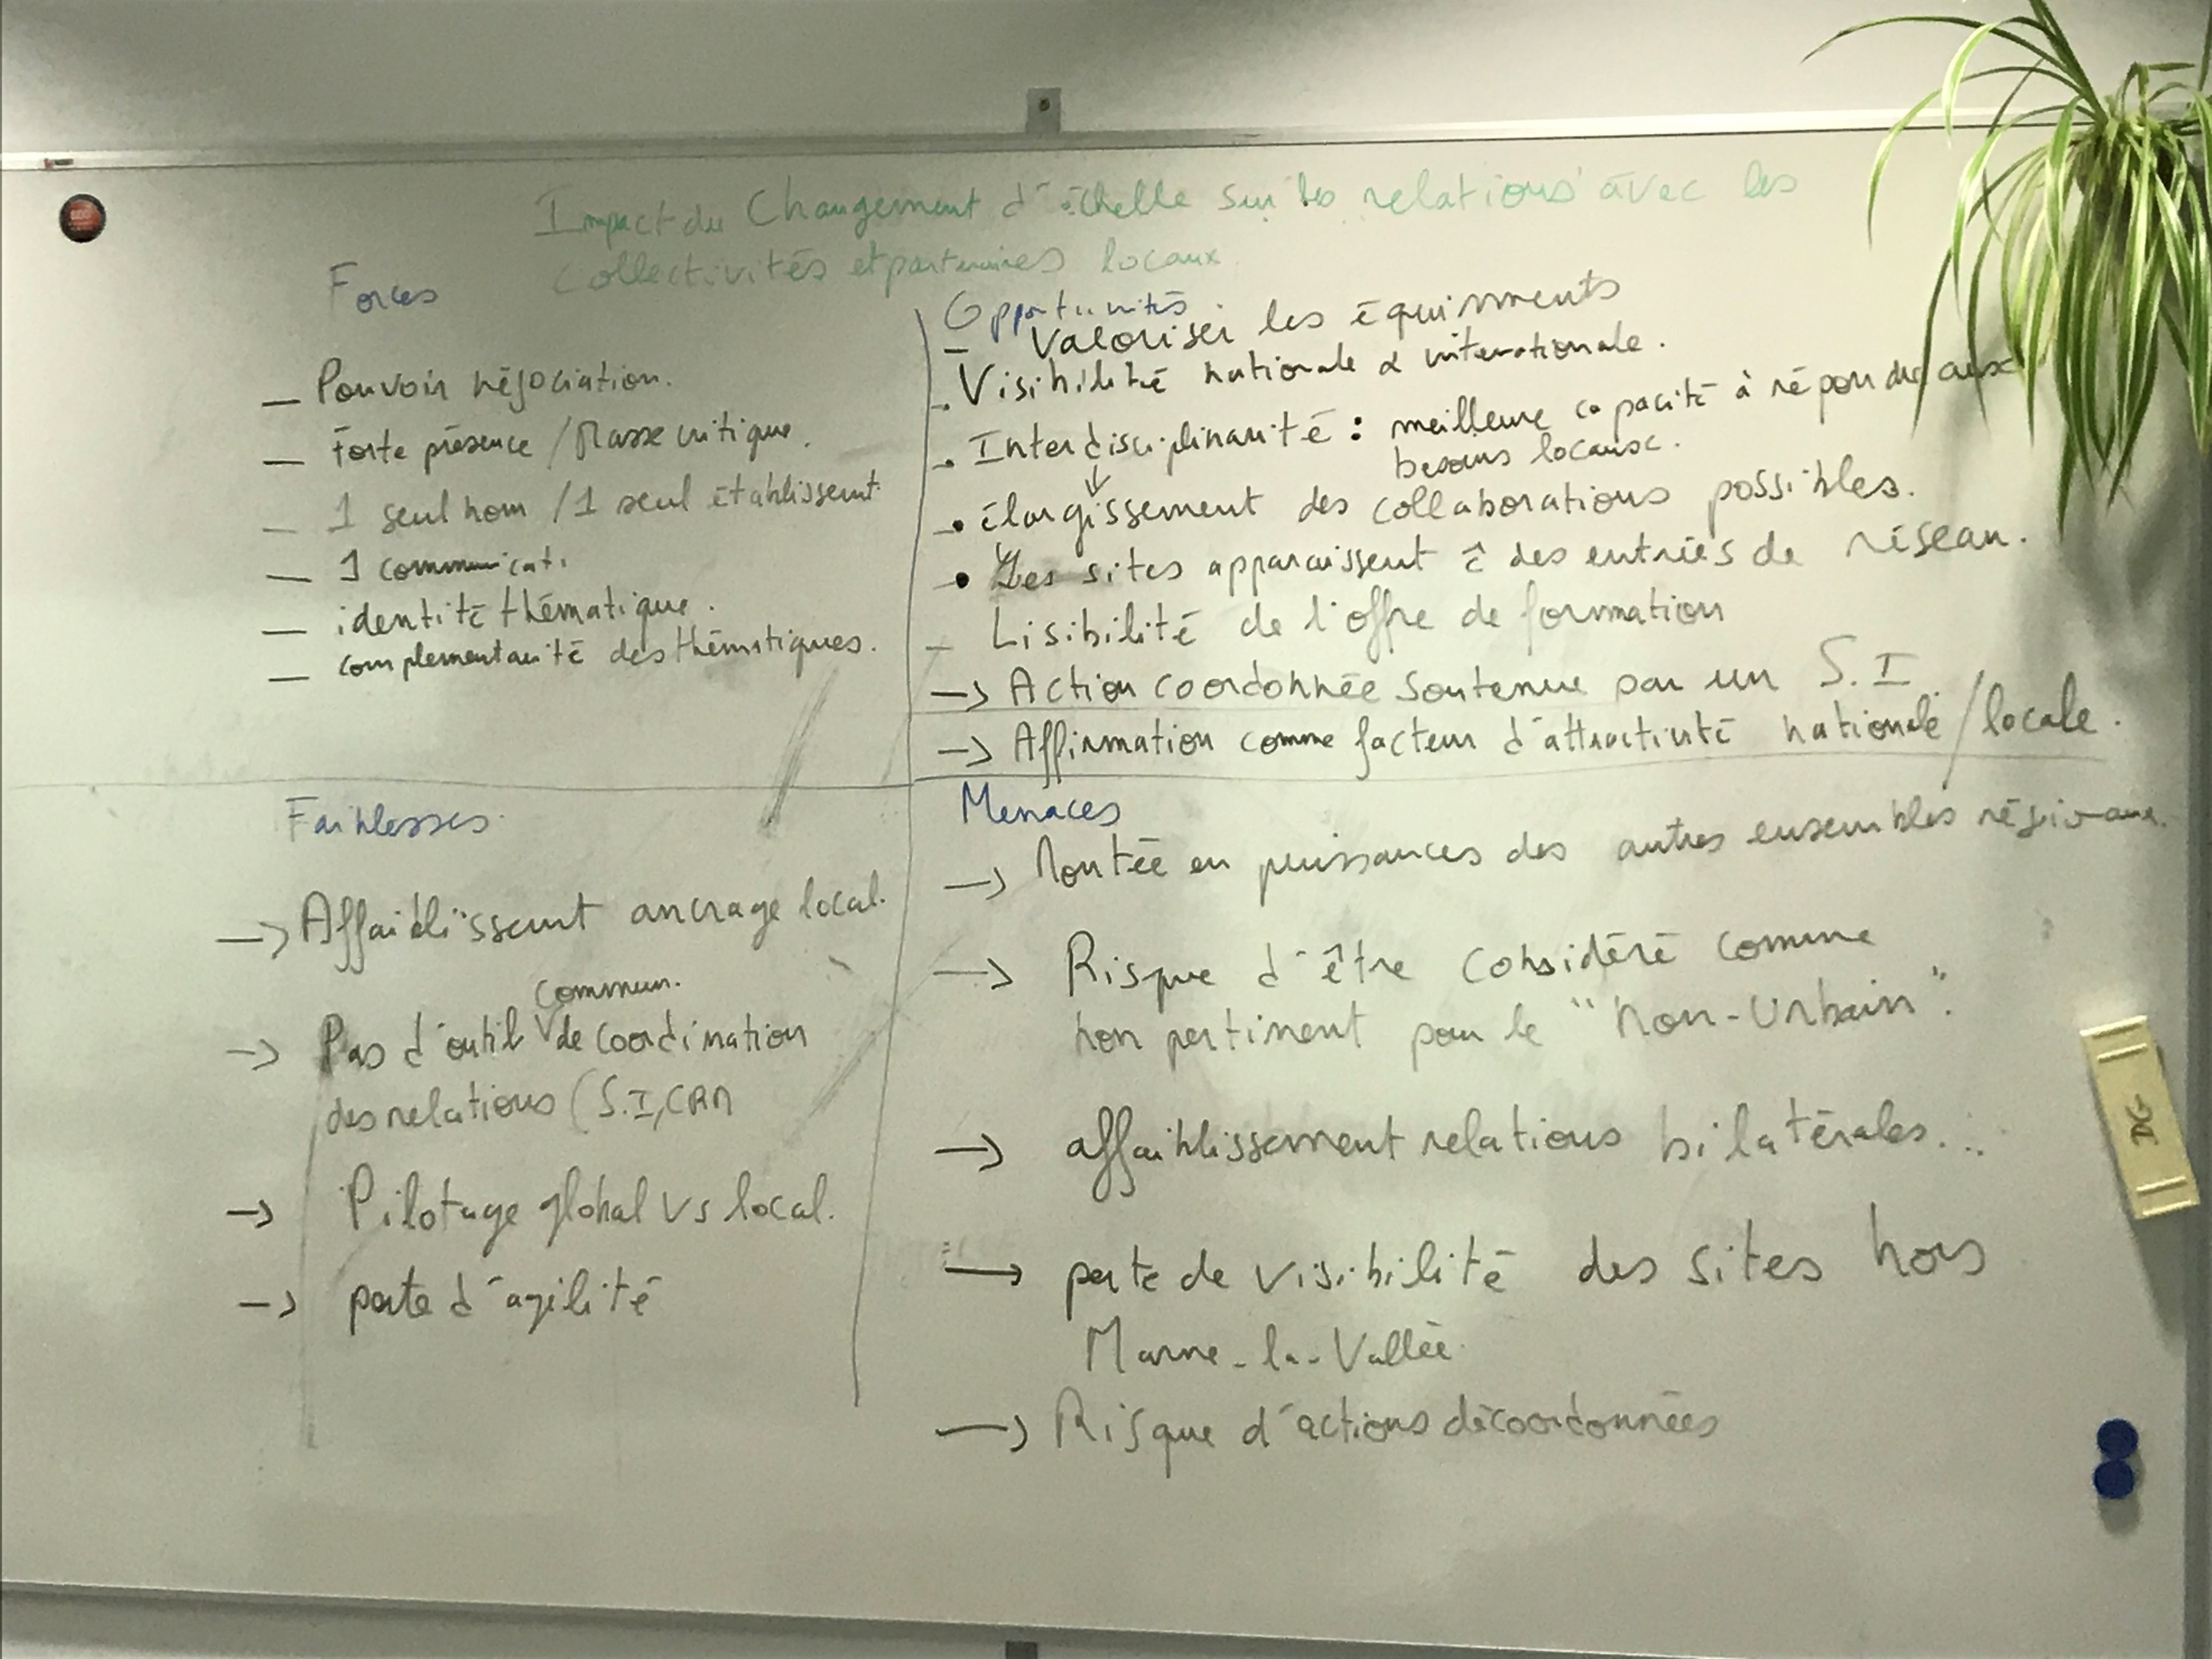 Impact du Changement d'échelle sur les relations avec les
collectivités et partenaires locaux
Forces
_ Pouvoir négociation.
_ forte présence / Masse critique.
_ 1 seul nom / 1 seul établissemt
_ 1 communicat.
_ identité thématique.
_ complementarité des thématiques.
Opportunités
- Valoriser les équipements
. Visibilité nationale & internationale.
. Interdisciplinarité : meilleure capacité à répondre aux
besoins locaux.
• élargissement des collaborations possibles.
• Les sites apparaissent c̄ des entrées de réseau.
- Lisibilité de l'offre de formation
-> Action coordonnée soutenue par un S.I.
-> Affirmation comme facteur d'attractivité nationale / locale.
Faiblesses
-> Affaiblissemt ancrage local.
commun.
-> Pas d'outil de coordination
des relations (S.I, CRM
-> Pilotage global vs local.
-> perte d'agilité
Menaces
-> Montée en puissances des autres ensembles régionaux.
-> Risque d'être considéré comme
non pertinent pour le "Non-Urbain".
-> affaiblissement relations bilatérales...
-> perte de visibilité des sites hors
Marne-la-Vallée.
-> Risque d'actions décoordonnées
DG